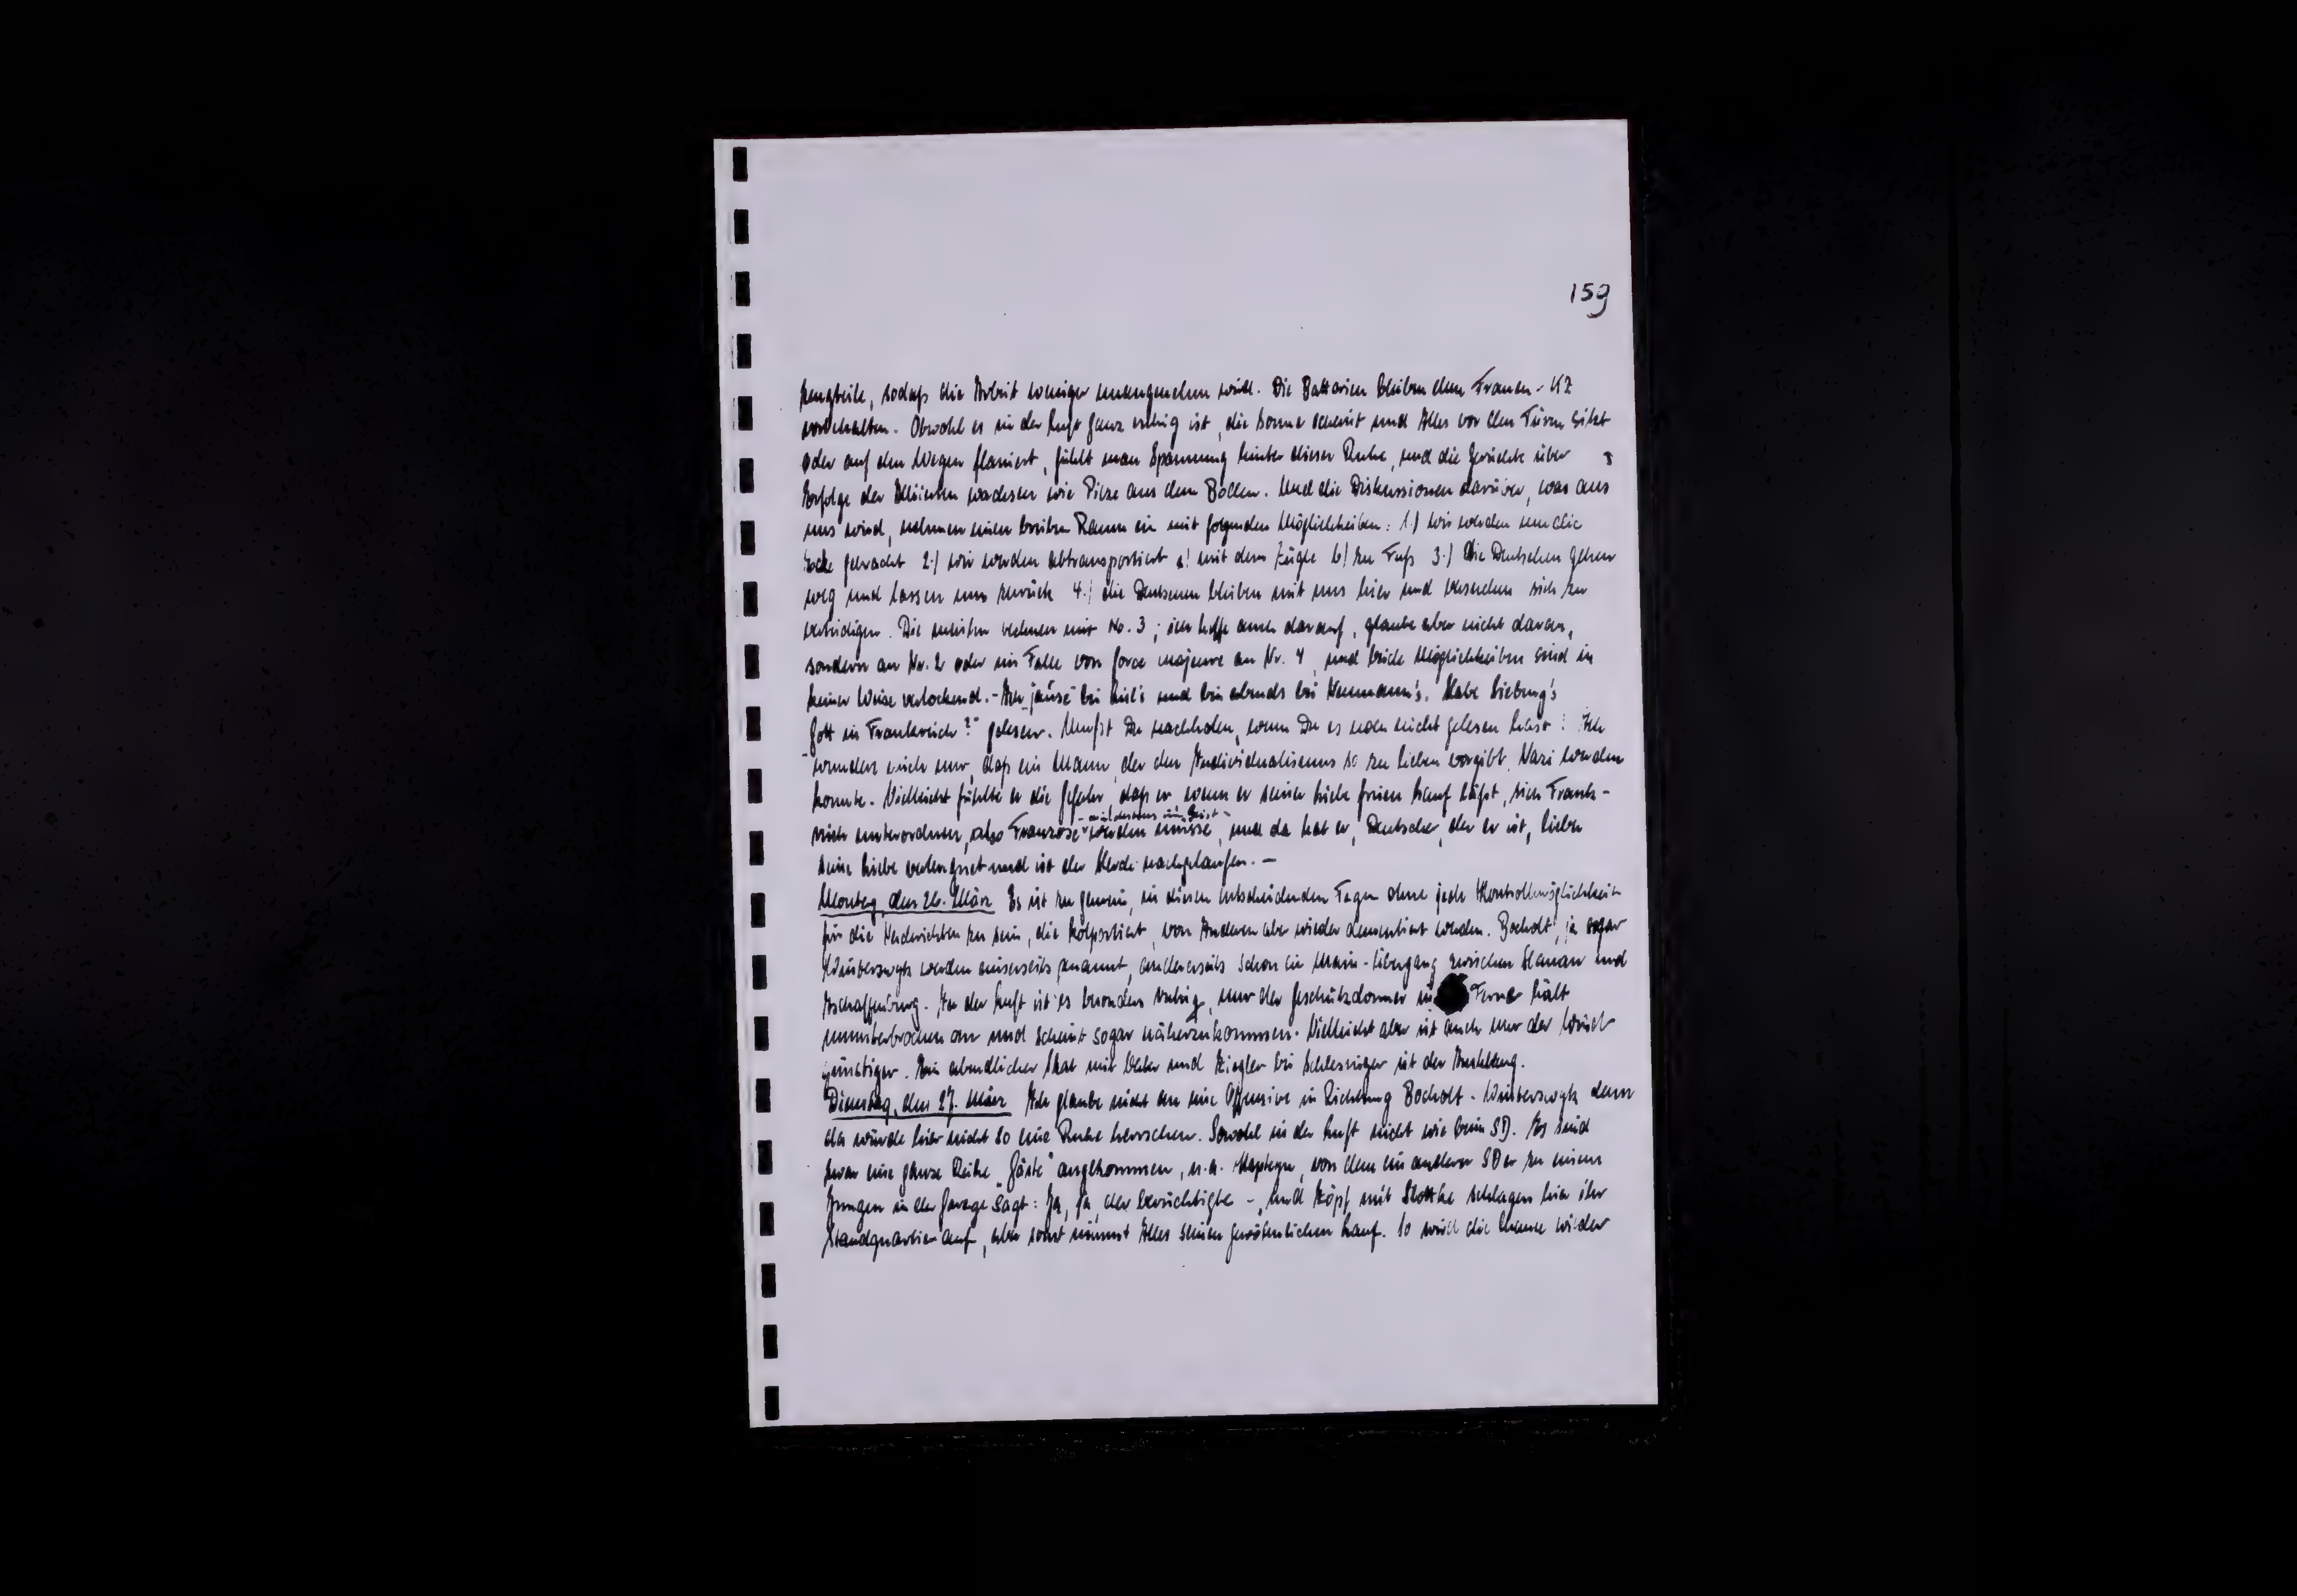 159
zeugteile, sodaß die Arbeit weniger unangenehm wird. Die Batterien bleiben dem Frauen-KZ
vorbehalten. Obwohl es in der Luft ganz ruhig ist, die Sonne scheint und Alles vor den Türen sitzt
oder auf den Wegen flaniert, fühlt man Spannung hinter dieser Ruhe, und die Gerüchte über
Erfolge der Alliierten wachsen wie Pilze aus dem Boden. Und die Diskussionen darüber, was aus
uns wird, nehmen einen breiten Raum ein mit folgenden Möglichkeiten: 1.) wir werden um die
Ecke gebracht 2.) wir werden abtransportiert a) mit dem Zuge b) zu Fuß 3.) Die Deutschen gehen
weg und lassen uns zurück 4.) die Deutschen bleiben mit uns hier und versuchen sich zu
verteidigen. Die meisten rechnen mit No. 3; ich hoffe auch darauf, glaube aber nicht daran,
sondern an Nr. 2 oder im Falle von force majeure an Nr. 4, und beide Möglichkeiten sind in
keiner Weise verlockend. - "jause" bei und bin abends bei Neumann's. Habe Sieburg's
"Gott in Frankreich?" gelesen. Mußt Du nachholen, wenn Du es noch nicht gelesen hast! Ich
wundere mich nur, daß ein Mann, der den Individualismus so zu lieben vorgibt, Nazi werden
konnte. Vielleicht fühlte er die Gefahr, daß er wenn er seiner Liebe freien Lauf läßt, sich Frank-
reich unterordnen, also Franzose - mindestens im Geist - werden müsse, und da hat er, Deutscher, der er ist, lieber
seine Liebe verleugnet und ist der Herde nachgelaufen. -
Montag, den 26. März Es ist zu gemein, in diesen entscheidenden Tagen ohne jede Kontrollmöglichkeit
für die Nachrichten zu sein, die kolportiert, von Anderen aber wieder dementiert werden. Bocholt, ja sogar
Winterswyk werden einerseits genannt, andererseits schon ein Main-Übergang zwischen Hanau und
Aschaffenburg. In der Luft ist es besonders ruhig, nur der Geschützdonner in Ferne hält
ununterbrochen an und scheint sogar näherzukommen. Vielleicht aber ist auch nur der Wind
günstiger. Ein abendlicher Skat mit und Ziegler bei Schlesinger ist der Ausklang.
Dienstag, den 27. März Ich glaube nicht an eine Offensive in Richtung Bocholt - Winterswyk denn
da würde hier nicht so eine Ruhe herrschen. Sowohl in der Luft nicht wie beim SD. Es sind
zwar eine ganze Reihe "Gäste" angekommen, u.a. von dem ein anderer SDer zu einem
Jungen in der Garage sagt: Ja, ja, der berüchtigte -, und mit schlagen hier ihr
Standquartier auf, aber sonst nimmt Alles seinen gewöhnlichen Lauf. So wird die wieder